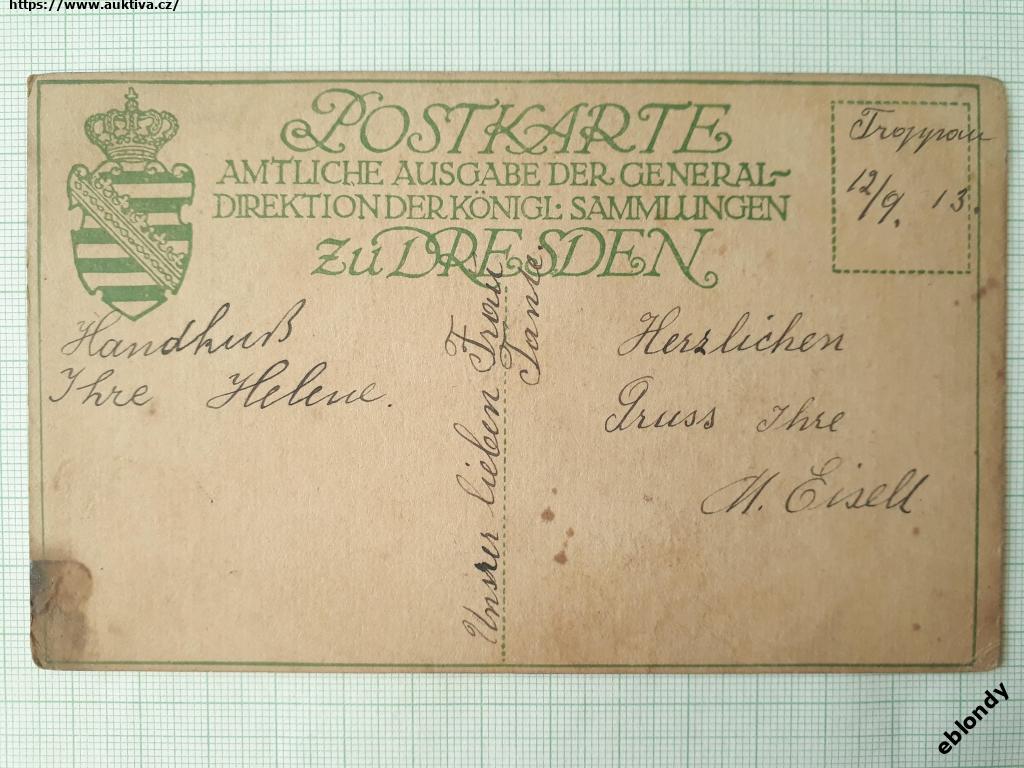 https://www.auktiva.cz/
POSTKARTE
AMTLICHE AUSGABE DER GENERAL-
DIREKTION DER KÖNIGL: SAMMLUNGEN
ZU DRESDEN
Troppau
12/9. 13.
Handkuß
Ihre Helene.
Unsrer lieben Frau
Tante.
Herzlichen
Gruss Ihre
M. Eisell
eblondy